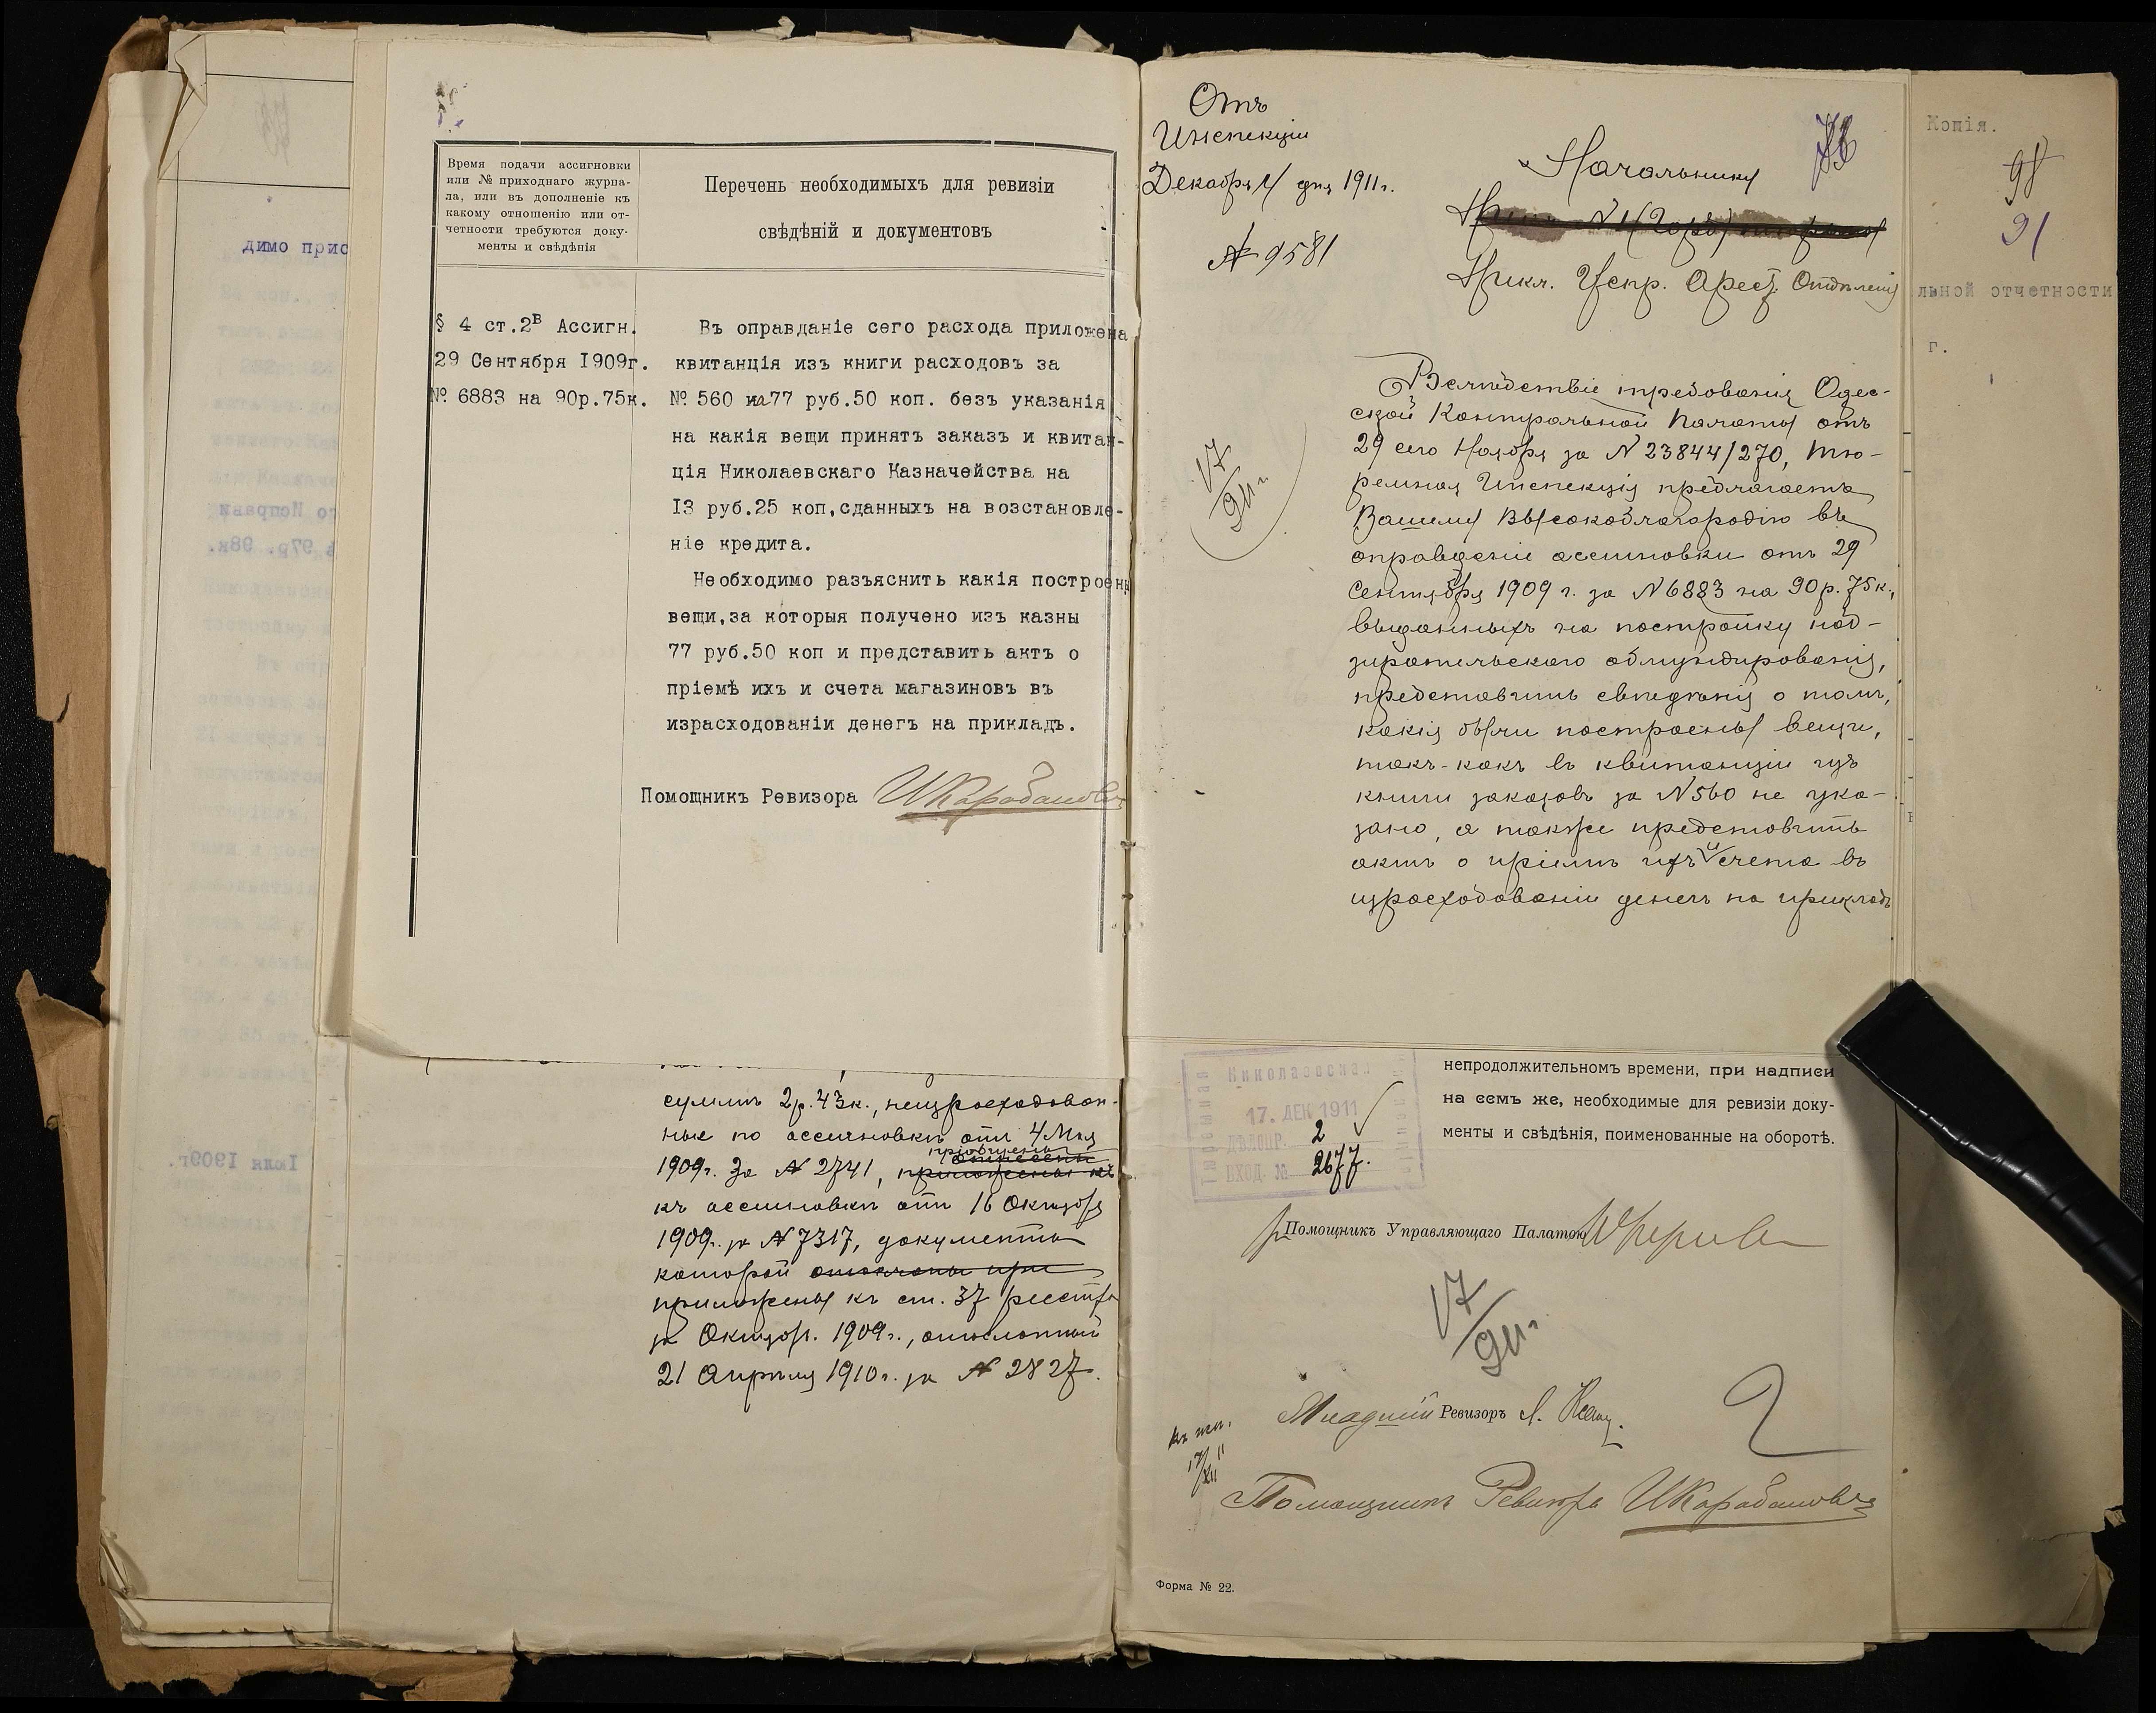 димо прис
Время подачи ассигновки
или № приходнаго журна-
ла, или въ дополненіе къ
какому отношенію или от-
четности требуются доку-
менты и свѣдѣнія
Перечень необходимыхъ для ревизіи
свѣдѣній и документовъ
§ 4 ст.2в Ассигн.
29 Сентября 1909г.
№ 6883 на 90р.75к.
Въ оправданіе сего расхода приложена
квитанція изъ книги расходовъ за
№ 560 на 77 руб.50 коп. безъ указанія
на какія вещи принятъ заказъ и квитан-
ція Николаевскаго Казначейства на
13 руб.25 коп,сданныхъ на возстановле-
ніе кредита.
Необходимо разъяснить какія построены
вещи,за которыя получено изъ казны
77 руб.50 коп и представить актъ о
пріемѣ ихъ и счета магазиновъ въ
израсходованіи денегъ на прикладъ.
Помощникъ Ревизора
суммъ 2р. 43к., неизрасходован-
ные по ассигновкѣ отъ 4 Мая
пріобщены
1909г. за № 2741, приложены къ
къ ассигновкѣ отъ 16 Октября
1909г. за № 7317, документы
которой отосланы при
приложены къ ст. 37 реестра
за Октябрь 1909г., отосланный
21 Апрѣля 1910г. за № 2827.
Отъ
Инспекціи
Декабря 4 дня 1911г.
№ 9581
Начальнику
Никл. Испр. Арест. Отдѣленія
Вслѣдствіе требованія Одес-
ской Контрольной Палаты отъ
29 сего Ноября за № 23844/270, Тю-
ремная Инспекція предлагаетъ
Вашему Высокоблагородію въ
оправданіе ассигновки отъ 29
Сентября 1909 г. за № 6883 на 90 р. 75 к.,
выданныхъ на постройку над-
зирательскаго обмундированія,
представить свѣдѣнія о томъ,
какія были построены вещи,
такъ-какъ въ квитанціи изъ
книги заказовъ за № 560 не ука-
зано, а также представить
актъ о пріемѣ ихъ и счета въ
израсходованіи денегъ на прикладъ
17/911г.
непродолжительномъ времени, при надписи
на семъ же, необходимые для ревизіи доку-
менты и свѣдѣнія, поименованные на оборотѣ.
Николаевская
17. ДЕК 1911
ДѢЛОПР. 2
ВХОД. № 2677.
Помощникъ Управляющаго Палатою
17/911г.
Младшій Ревизоръ
2
17/XII 11
Помощникъ Ревизора
Форма № 22.
Копія.
98
91
льной отчетности
г.
го Исправи
97р. 98к.
Іюля 1909г.